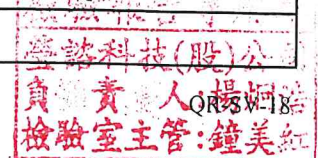 瑩諮科技(股)公
負責人:楊
QR-SV-18
檢驗室主管:鐘美紅